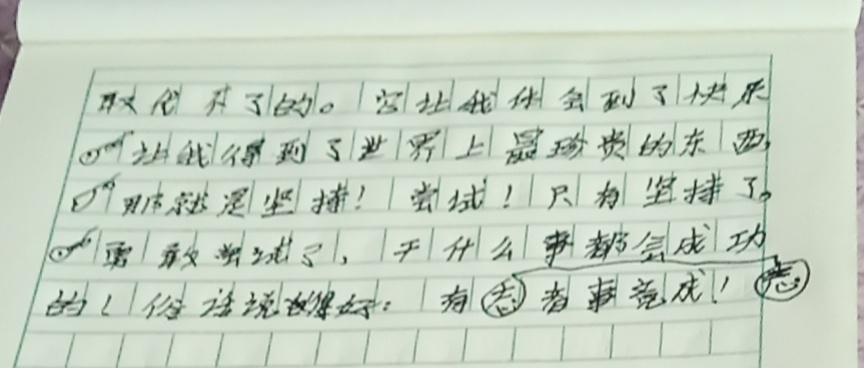 取代不了的。它让我体会到了快乐
让我得到了世界上最珍贵的东西,
那就是坚持！尝试！只有坚持了。
勇敢尝试了，干什么事都会成功
的！俗话说得好：有志者事竟成！志